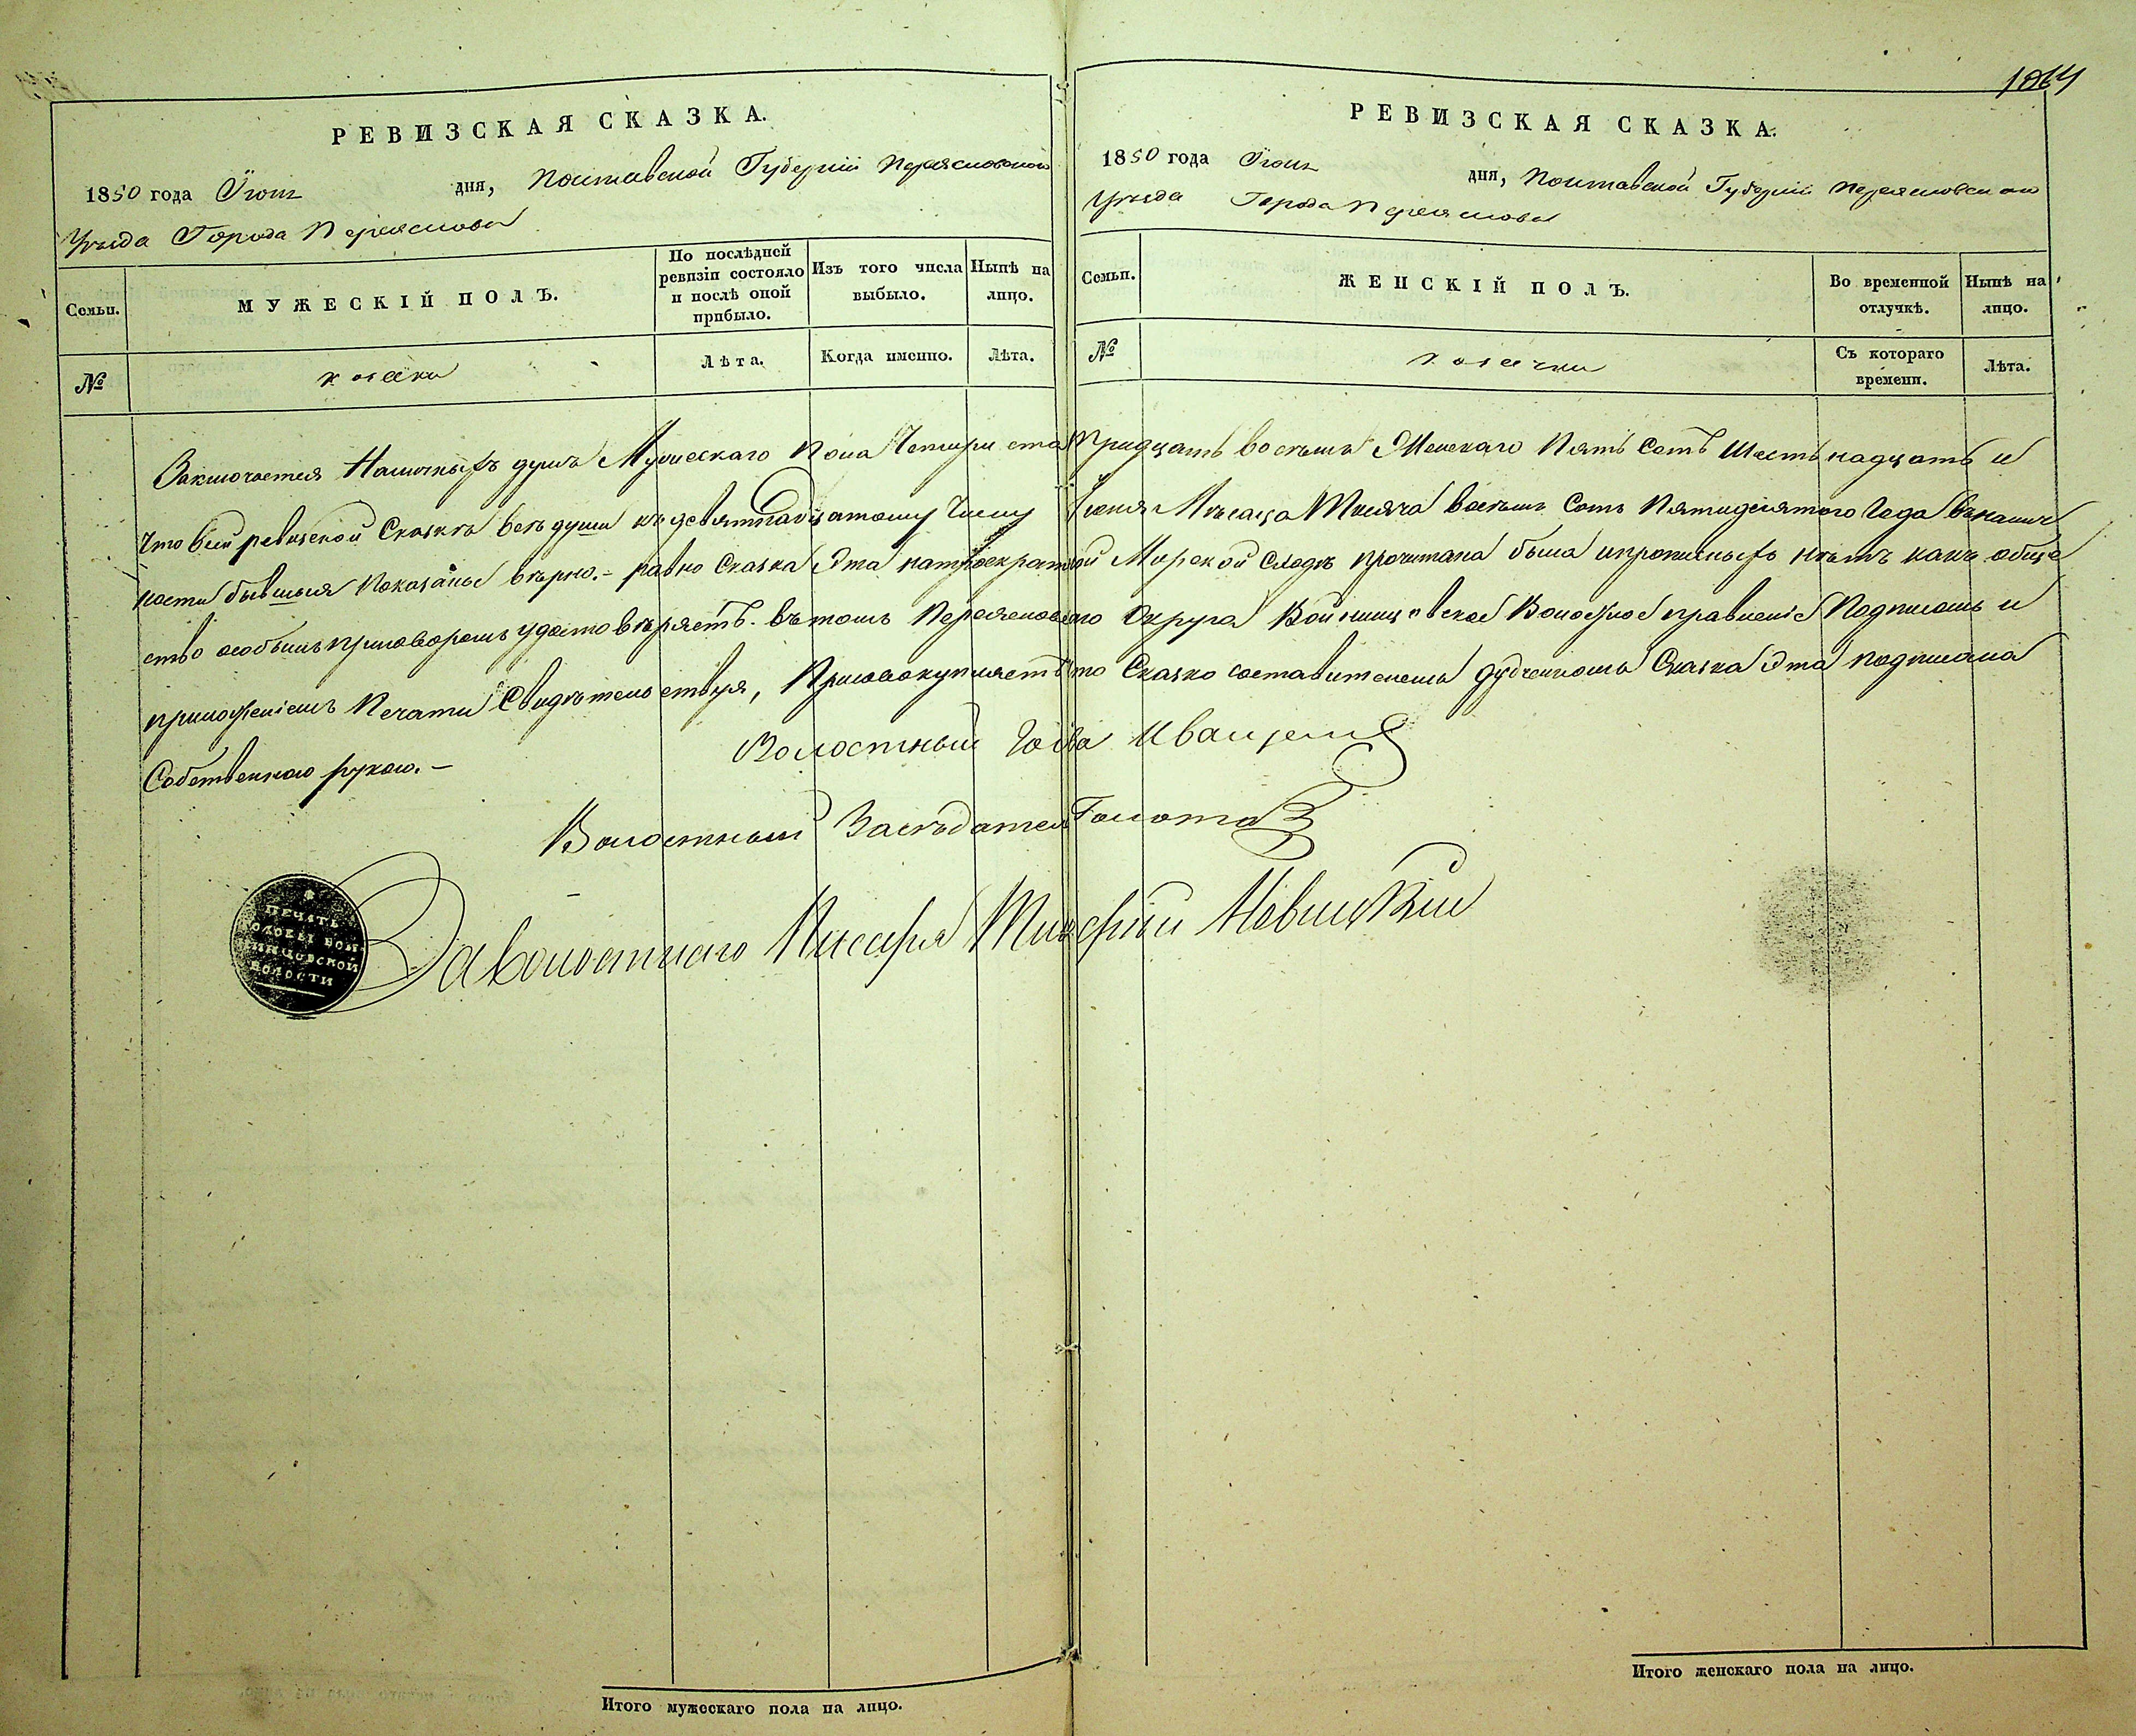 1064
РЕВИЗСКАЯ СКАЗКА.
1850 года Іюня дня, Полтавской Губерніи Переясловского
Уѣзда Города Переяслова
Семьи.
МУЖЕСКІЙ ПОЛЪ.
По послѣдней ревизіи состояло и послѣ оной прибыло.
Изъ того числа выбыло.
Нынѣ на лицо.
№
козаки
Лѣта.
Когда именно.
Лѣта.
РЕВИЗСКАЯ СКАЗКА.
1850 года Іюня дня, Полтавской Губерніи Переясловского
Уѣзда Города Переяслова
Семьи.
ЖЕНСКІЙ ПОЛЪ.
Во временной отлучкѣ.
Нынѣ на лицо.
№
козачки
Съ котораго времени.
Лѣта.
Заключается Наличныхъ душъ Мужескаго Пола Четыри ста Тридцать восемъ Женскаго Пять Сотъ Шестьнадцать и
что всей ревизской Сказкѣ всѣ души къ девятнадцатому Числу Іюня Мѣсяца Тысяча восемъ Сотъ Пятидесятого Года въналич
ности бывшыя Показаны вѣрно. - равно Сказка Эта на Мирской Сходкѣ прочитана была ипрописныхъ нѣтъ какъ обще
ство особымъ приговоромъ удостовѣряетъ. въ томъ Переясловского Округа Войницовское Волосное правленіе Подписомъ и
приложеніемъ Печати Свидѣтельствуя, Присовокупляетъ что Сказко составителемъ Дудченкомъ Сказка Эта подписана
Собственною рукою. -
Волостный Голова Иващенко
Волостный Засѣдатель Голота
За волостнаго Писаря Тимофѣй Невицкій
ПЕЧАТЬ
ГОЛОВЫ ВОЙ
НИЦОВСКОЙ
ВОЛОСТИ
Итого мужескаго пола на лицо.
Итого женскаго пола на лицо.